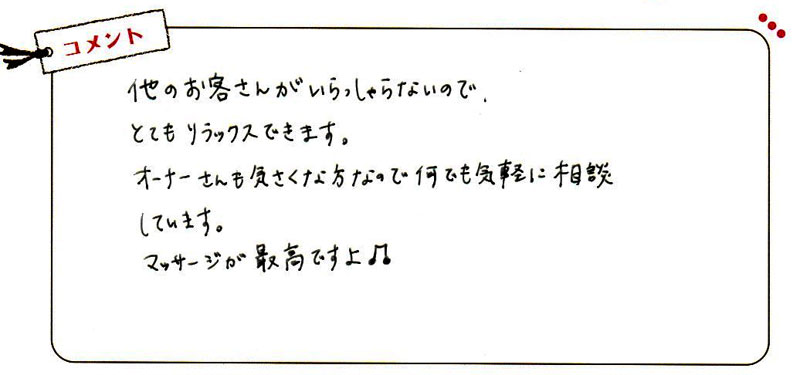 コメント
他のお客さんがいらっしゃらないので、
とてもリラックスできます。
オーナーさんも気さくな方なので何でも気軽に相談
しています。
マッサージが最高ですよ♫